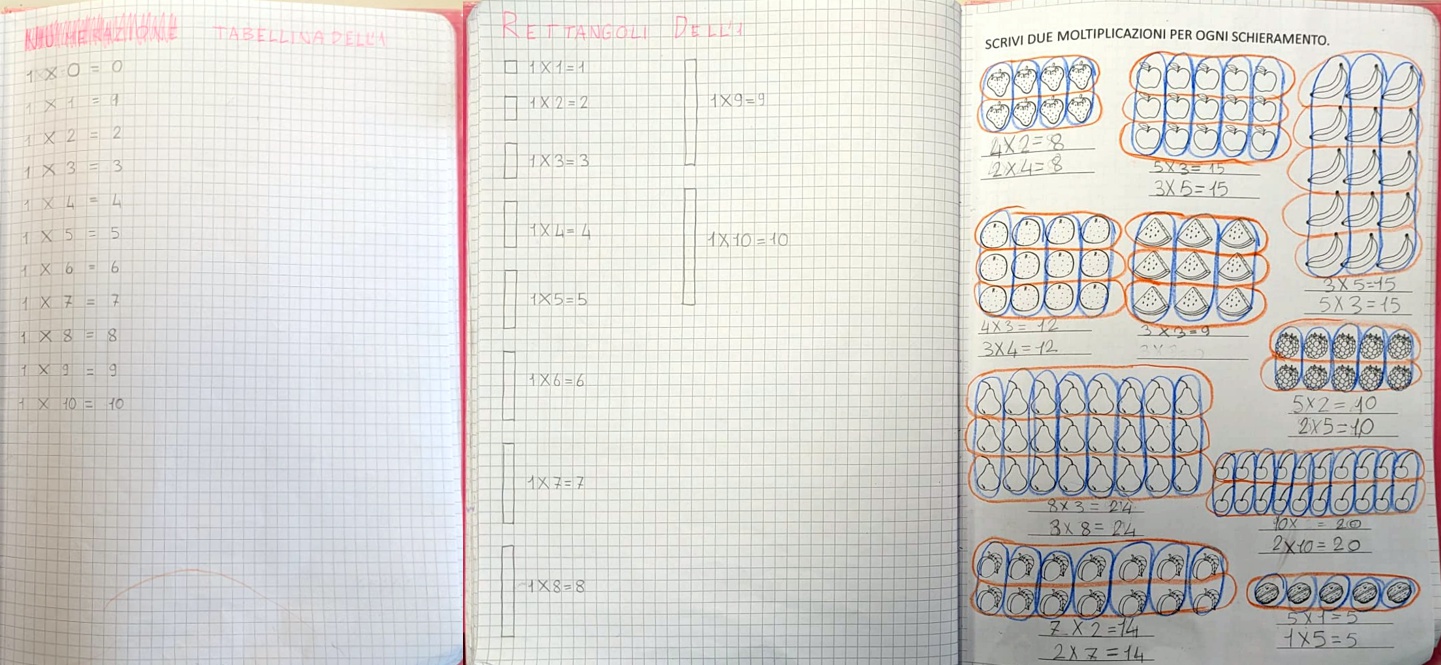 NUMERAZIONE TABELLINA DELL'1
1 X 0 = 0
1 X 1 = 1
1 X 2 = 2
1 X 3 = 3
1 X 4 = 4
1 X 5 = 5
1 X 6 = 6
1 X 7 = 7
1 X 8 = 8
1 X 9 = 9
1 X 10 = 10
RETTANGOLI DELL'1
1X1=1
1X2=2
1X3=3
1X4=4
1X5=5
1X6=6
1X7=7
1X8=8
1X9=9
1X10=10
SCRIVI DUE MOLTIPLICAZIONI PER OGNI SCHIERAMENTO.
4X2=8
2X4=8
5X3=15
3X5=15
3X5=15
5X3=15
4X3=12
3X4=12
3X3=9
5X2=10
2X5=10
8X3=24
3X8=24
10X = 20
2X10=20
7X2=14
2X7=14
5X1=5
1X5=5